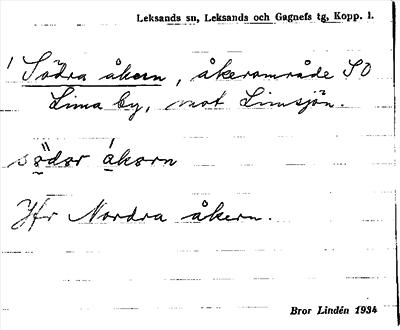 Leksands sn, Leksands och Gagnefs tg, Kopp. l.
1 Södra åkern, åkerområde SO
Lima by, mot Limsjön.
södor åkorn
Jfr Nordra åkern.
Bror Lindén 1934